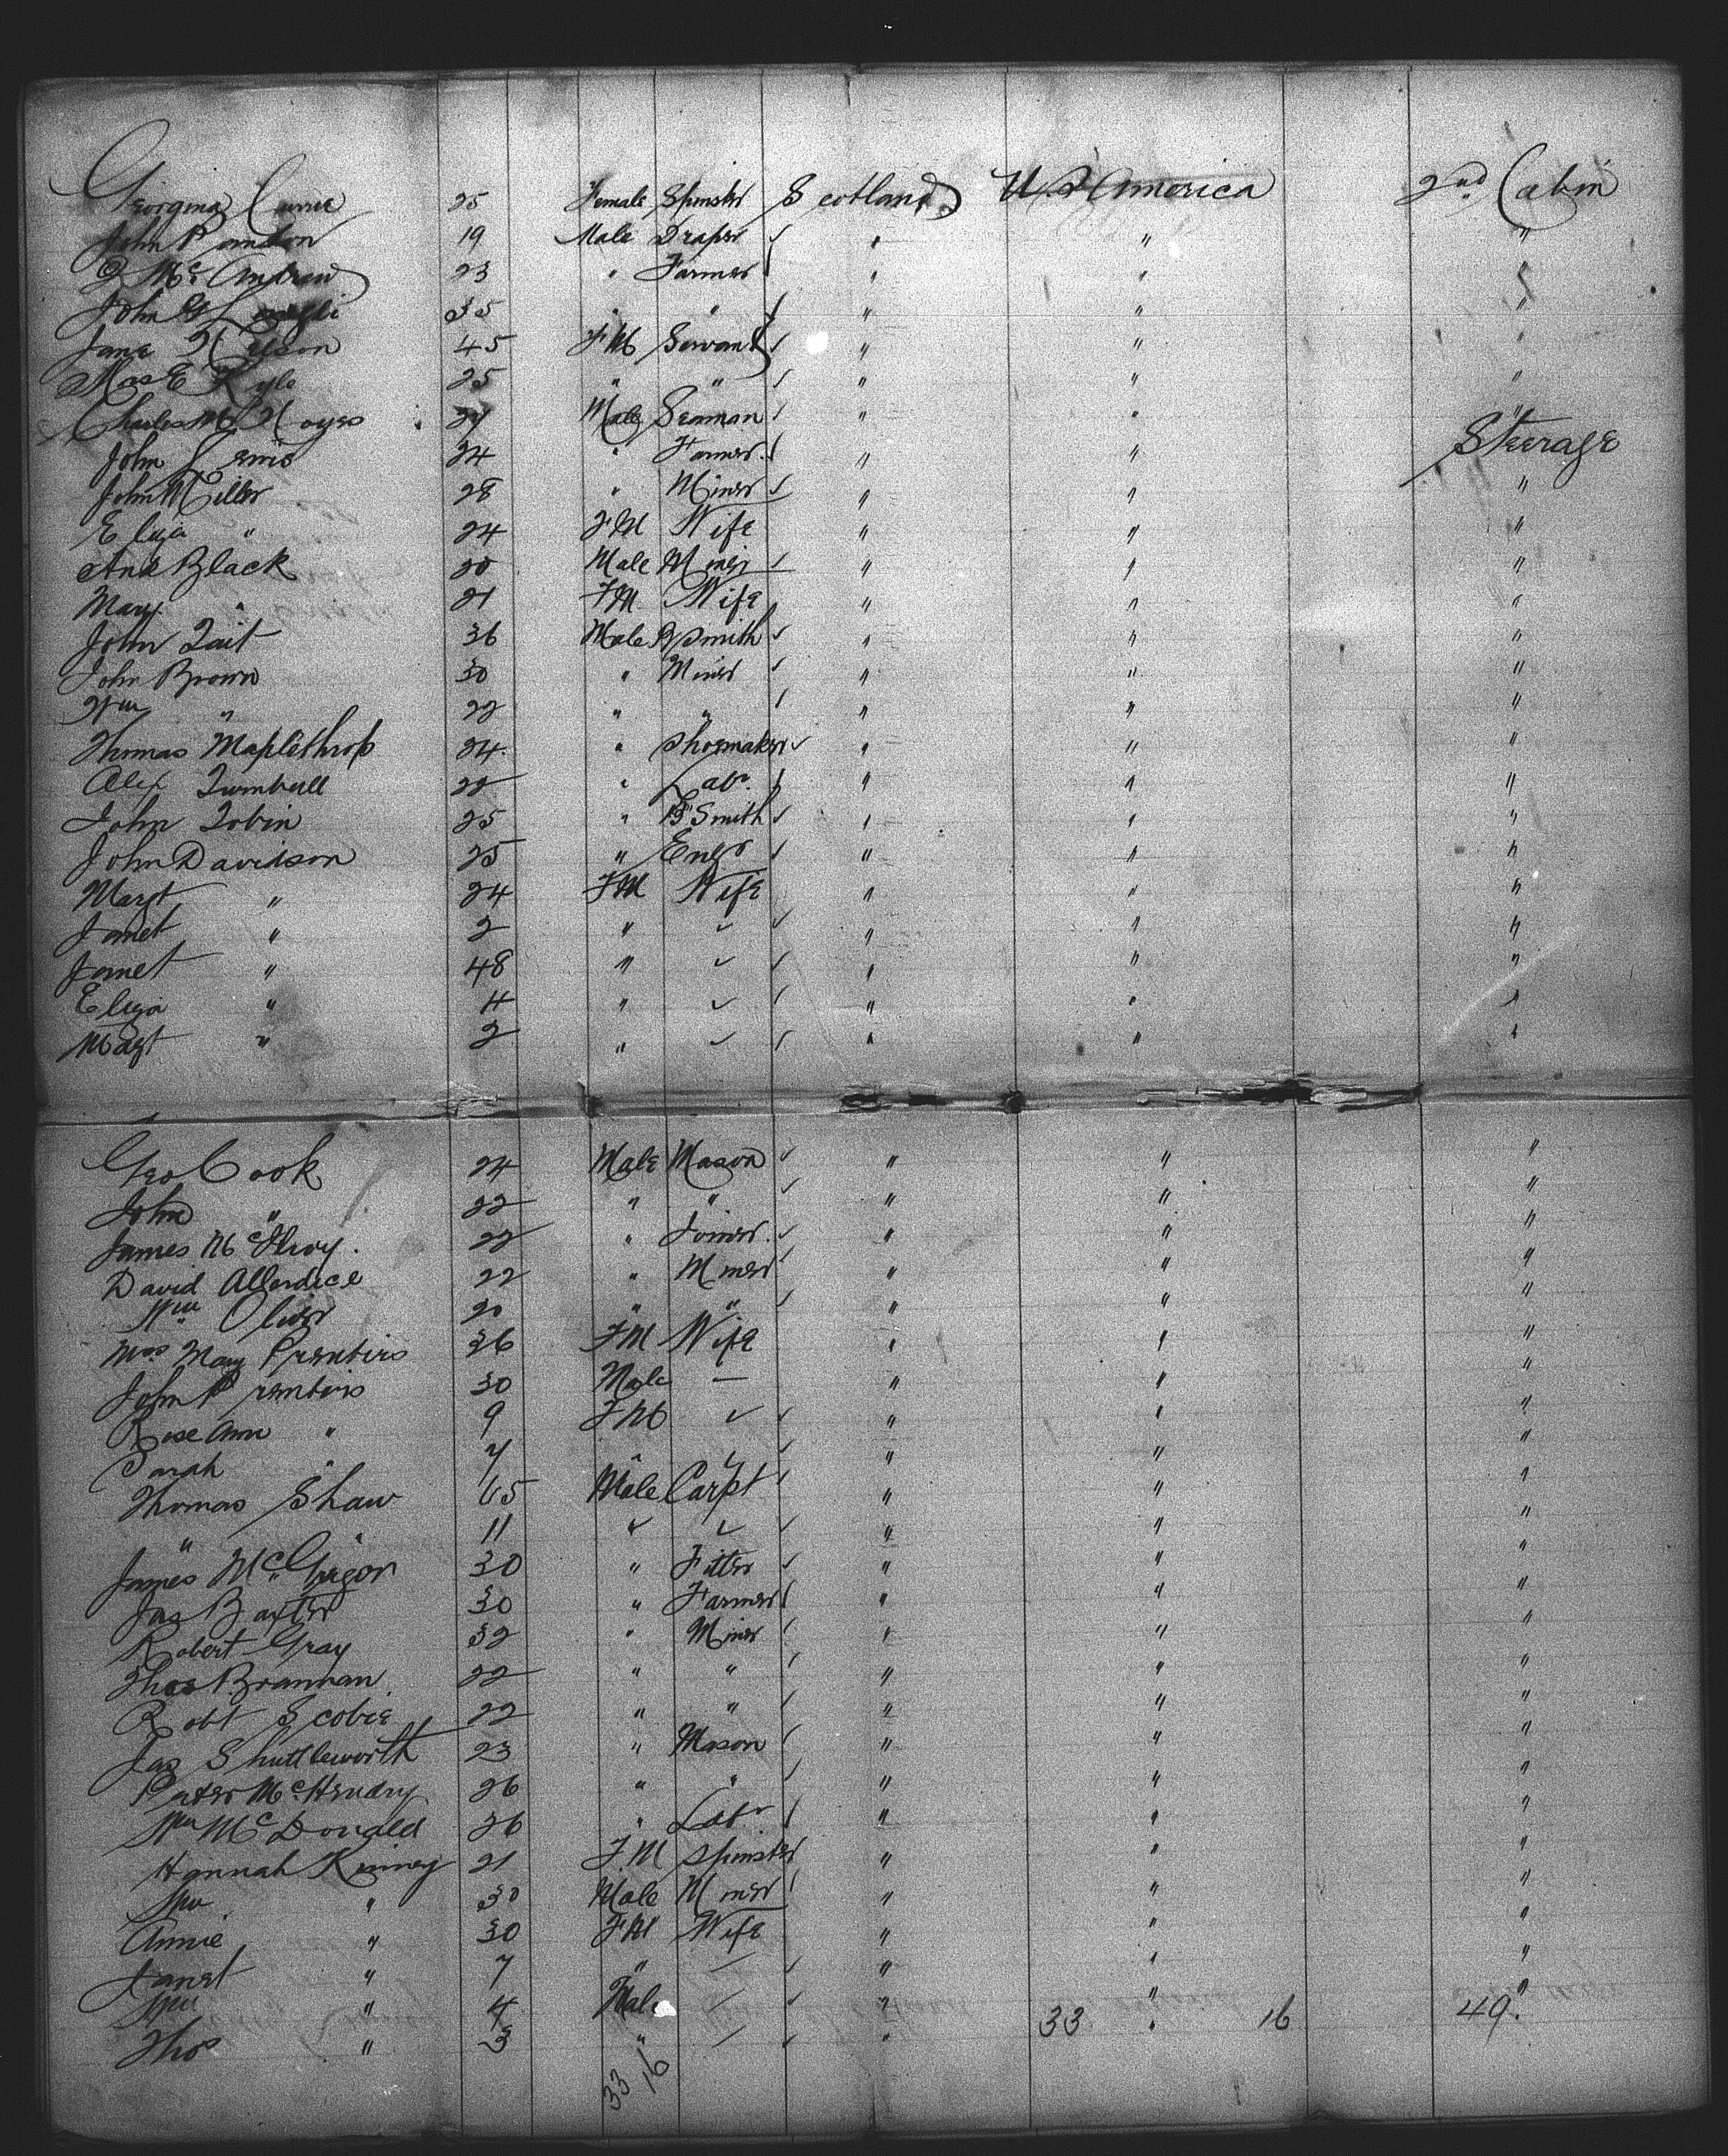 Georgina Currie 25 Female Spinster Scotland U S America 2nd Cabin
John 19 Male Draper " " "
McAndrew 23 " Farmer " " "
John 35 " " " " "
Jane 45 FM Servant " " "
Kyle 25 " " " " "
Charles Noyes Male Seaman " " "
John Lewis 24 " Farmer " " Steerage
John Miller 28 " Miner " " "
Eliza " 24 FM Wife " " "
And Black 30 Male Miner " " "
Mary " 21 FM Wife " " "
John Tait 36 Male B Smith " " "
John Brown 30 " Miner " " "
Wm " 22 " " " " "
Thomas Maplethrop 24 " Shoemaker " " "
Alex Turnbull 22 " Labr " " "
John Tobin 25 " B Smith " " "
John Davidson 25 " Engr " " "
Margt " 24 FM Wife " " "
Janet " 2 " ✓ " " "
Janet " 48 " ✓ " " "
Eliza " 4 " ✓ " " "
Magt " 2 " ✓ " " "
Geo Cook 24 Male Mason " " "
John " 22 " " " " "
James McIlroy. 22 " Joiner " " "
David Allerdice 22 " Miner " " "
Wm Oliver 20 " " " " "
Mrs Mary Prentiss 36 FM Wife " " "
John Prentiss 30 Male — " " "
Rose Ann " 9 FM ✓ " " "
Sarah " 7 " ✓ " " "
Thomas Shaw 65 Male Carpt " " "
" " 11 " ✓ " " "
James McGrigor 30 " Fitter " " "
Jas Baxter 30 " Farmer " " "
Robert Gray 32 " Miner " " "
Thos Brannan 22 " " " " "
Robt Scobie 22 " " " " "
Jas Shuttleworth 23 " Mason " " "
Peter McHendry 26 " " " " "
Wm McDonald 26 " Labr " " "
Hannah Kinney 21 FM Spinster " " "
Wm " 30 Male Miner " " "
Annie " 30 FM Wife " " "
Janet " 7 " — " " "
Wm " 4 Male — " " "
Thos " 3 " — " 33 " 16 49.
33 16